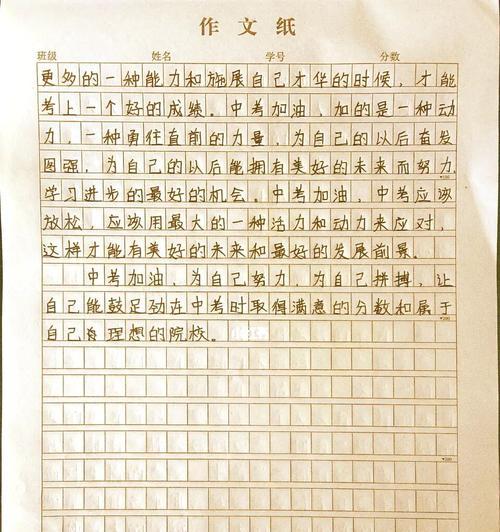 作文纸
班级 姓名 学号 分数
更多的一种能力和施展自己才华的时候，才能
考上一个好的成绩。中考加油，加的是一种动
力，一种勇往直前的力量，为自己的以后奋发
图强，为自己的以后能拥有美好的未来而努力，
学习进步的最好的机会。中考加油，中考应该
放松，应该用最大的一种活力和动力来应对，
这样才能有美好的未来和最好的发展前景。
中考加油，为自己努力，为自己拼搏，让
自己能鼓足劲在中考时取得满意的分数和属于
自己理想的院校。